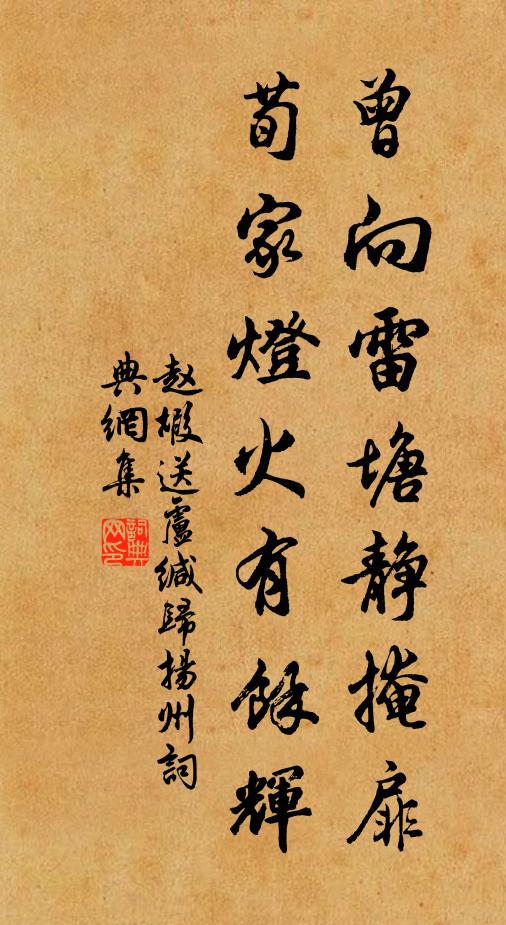 曾向雷塘靜掩扉
荀家燈火有餘輝
赵嘏送盧缄歸揚州詞
典網集
詞典网印